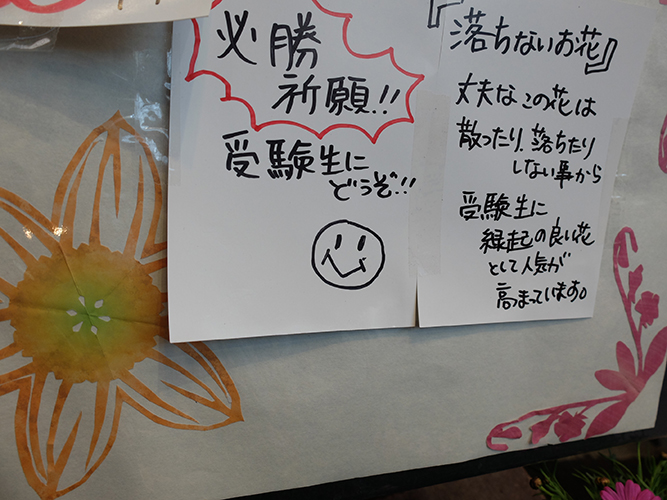 必勝
祈願!!
受験生に
どうぞ!!
『落ちないお花』
丈夫なこの花は
散ったり、落ちたり
しない事から
受験生に
縁起の良い花
として人気が
高まっています。